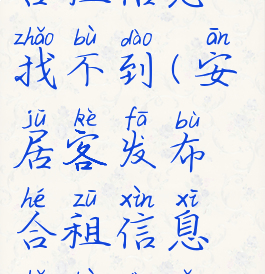 zhǎo bù dào ān
找不到(安
jū kè fā bù
居客发布
hé zū xìn xī
合租信息